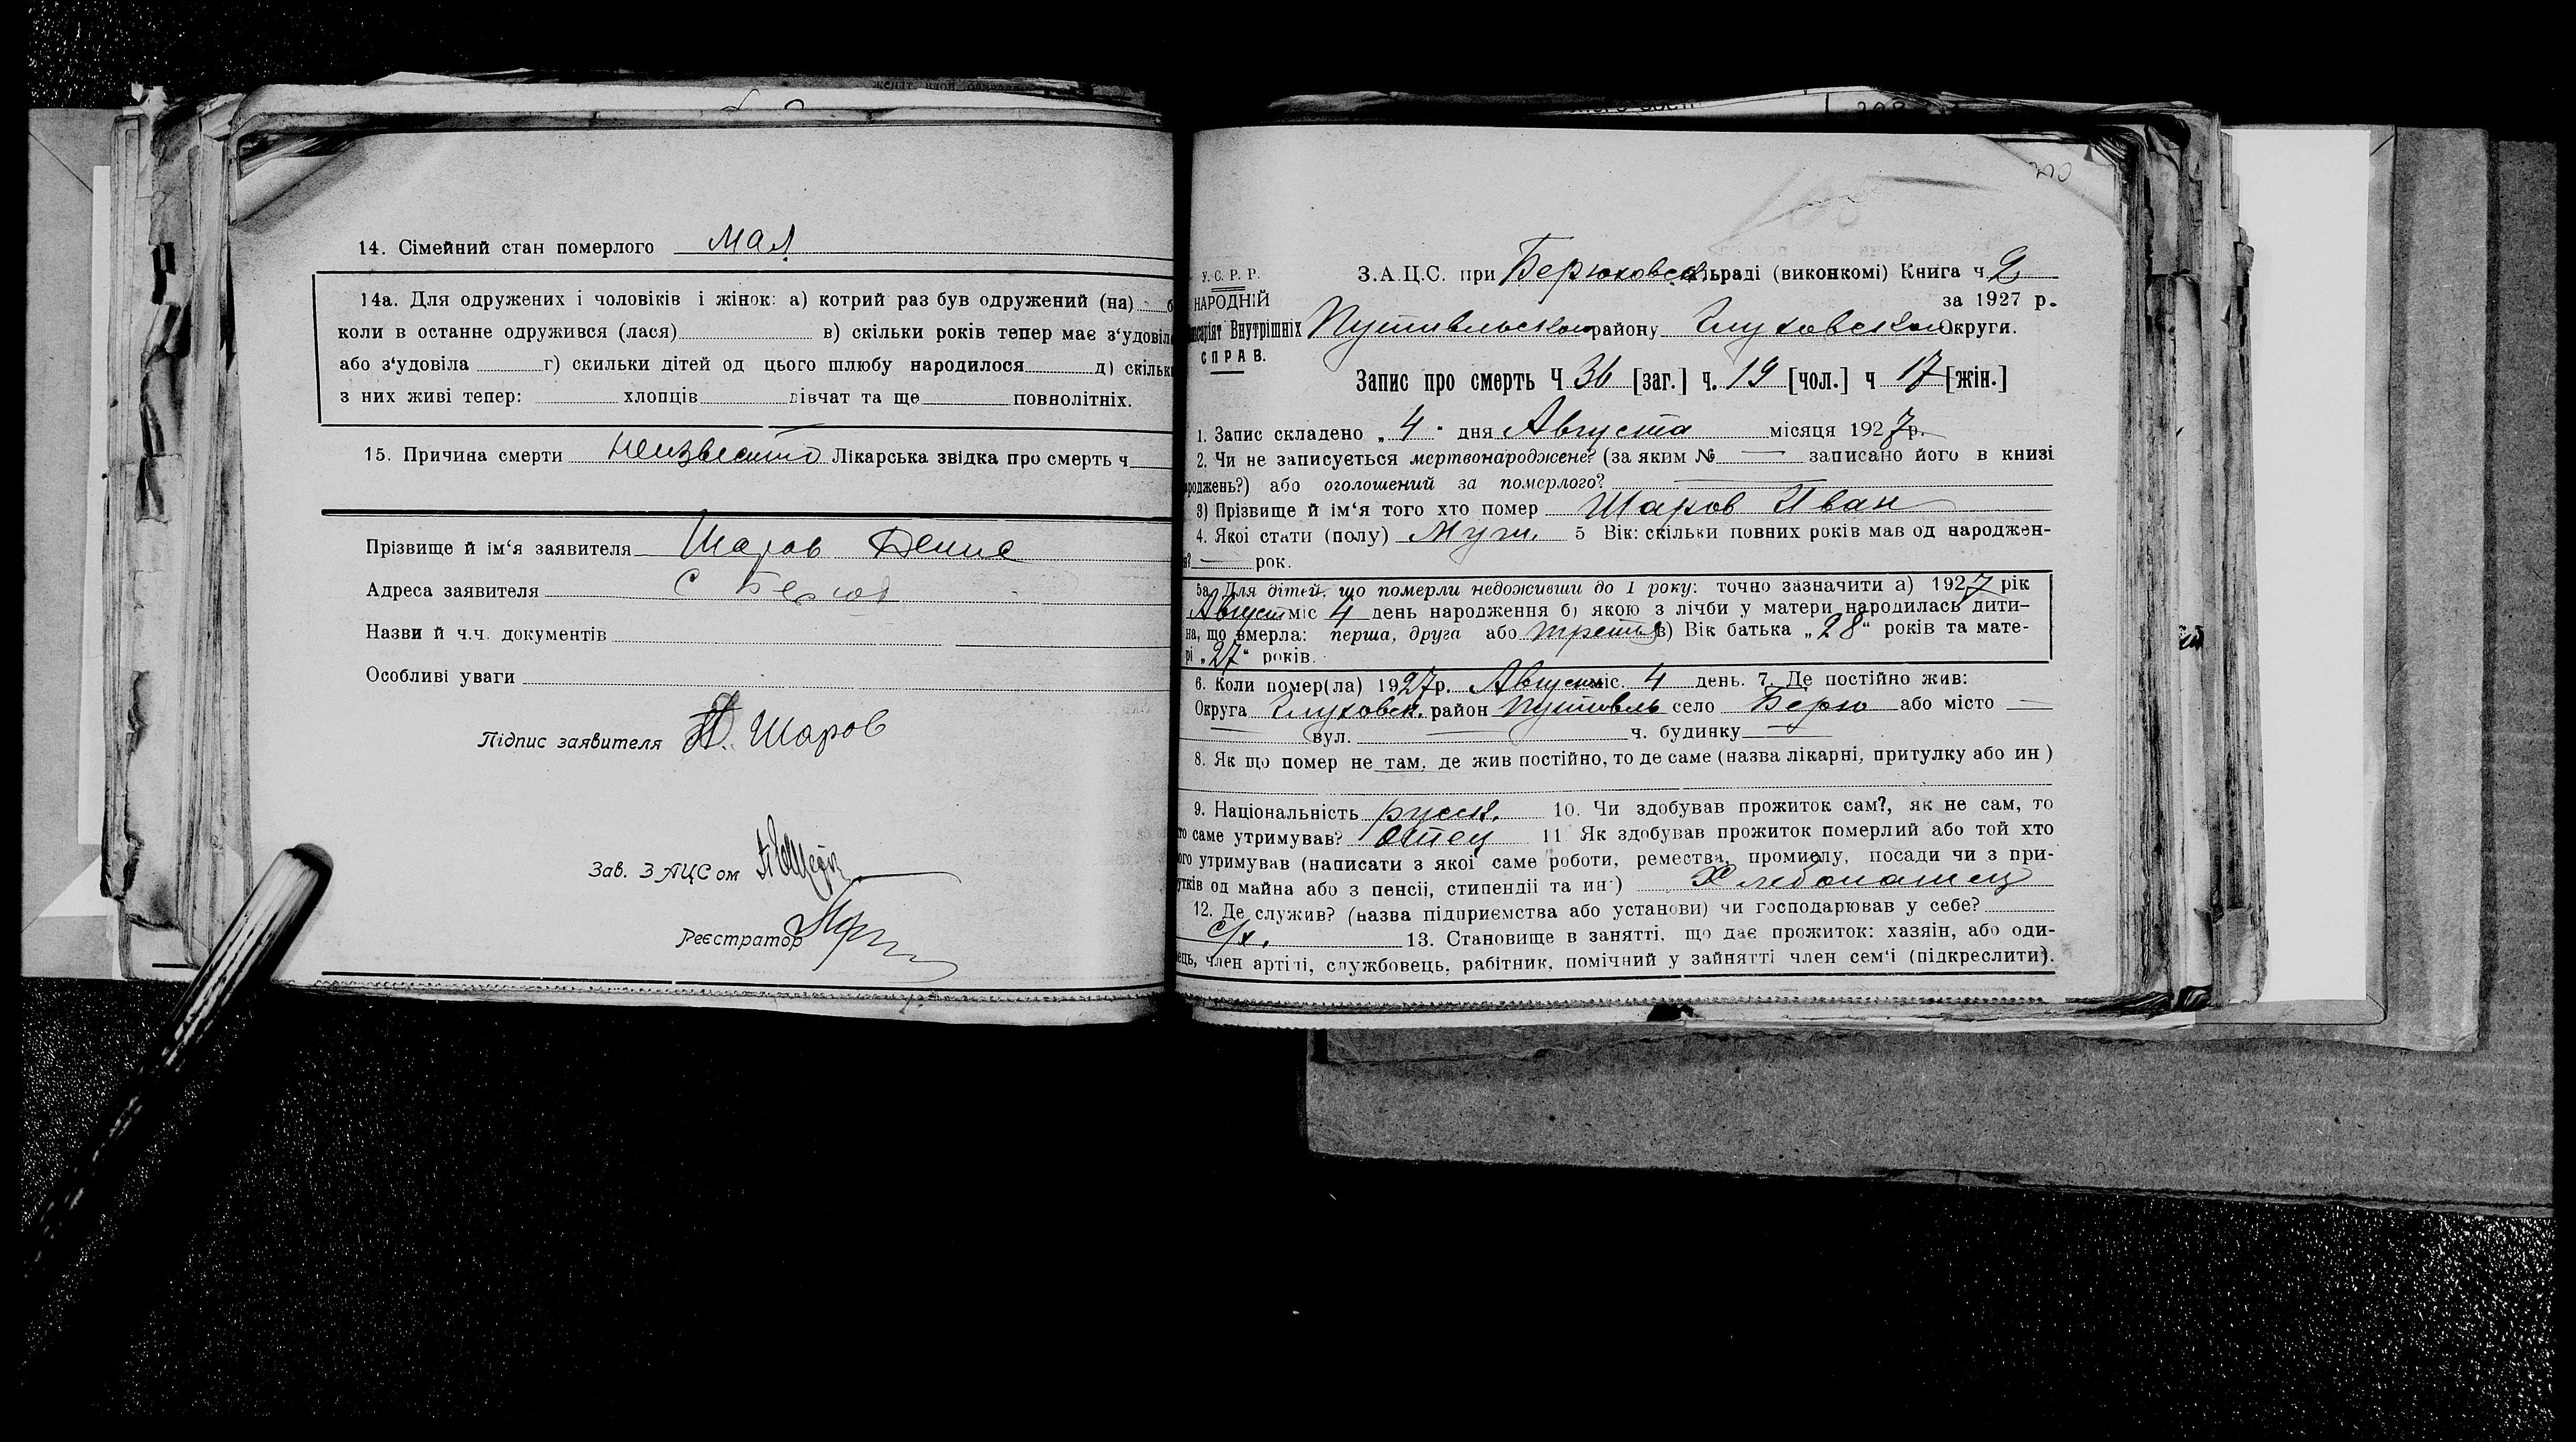 14. Сімейний стан померлого мал
14а. Для одружених і чоловіків і жінок: а) котрий раз був одружений (на)
коли в останне одружився (лася) в) скільки років тепер має з‘удовіл
або з‘удовіла г) скильки дітей од цього шлюбу народилося д) скільк
з них живі тепер: хлопців дівчат та ще повнолітніх.
15. Причина смерти неизвестно Лікарська звідка про смерть ч
Прізвище й ім‘я заявителя Шаров Денис
Адреса заявителя с Берюх
Назви й ч.ч. документів
Особливі уваги
Підпис заявителя Д. Шаров
Зав. ЗАЦСом
Реєстратор
200
У.С.Р.Р.
НАРОДНІЙ
Внутрішніх
СПРАВ.
З.А.Ц.С. при Берюховск. раді (виконкомі) Книга ч 2
за 1927 р.
Путивльского району Глуховской Округи.
Запис про смерть Ч 36 [заг.] ч. 19 [чол.] ч 17 [жін.]
1. Запис складено „ 4 “ дня Августа місяця 1927 р.
2. Чи не записується мертвонароджене? (за яким № — записано його в книзі
роджень?) або оголошений за померлого? —
3) Прізвище й ім‘я того хто помер Шаров Иван
4. Якоі стати (полу) Муж. 5 Вік: скільки повних років мав од народжен-
— рок.
5а. Для дітей, що померли недоживши до 1 року: точно зазначити а) 1927 рік
Август міс 4 день народження б) якою з лічби у матери народилась дити-
на, що вмерла: перша, друга або третья в) Вік батька „28“ років та мате-
рі „27“ років.
6. Коли помер(ла) 1927р. Август міс. 4 день. 7. Де постійно жив:
Округа Глуховск. район Путивль село Берю або місто —
— вул. — ч. будинку —
8. Як що помер не там, де жив постійно, то де саме (назва лікарні, притулку або ин )
9. Національність русск. 10. Чи здобував прожиток сам?, як не сам, то
то саме утримував? Отец 11 Як здобував прожиток померлий або той хто
ого утримував (написати з якоі саме роботи, ремества, промислу, посади чи з при-
утків од майна або з пенсіі, стипендіі та ин·) Хлебопашец
12. Де служив? (назва підприємства або установи) чи господарював у себе?
с/х. 13. Становище в занятті, що дає прожиток: хазяін, або оди-
ець, член артілі, службовець, рабітник, помічний у зайнятті член сем‘і (підкреслити).